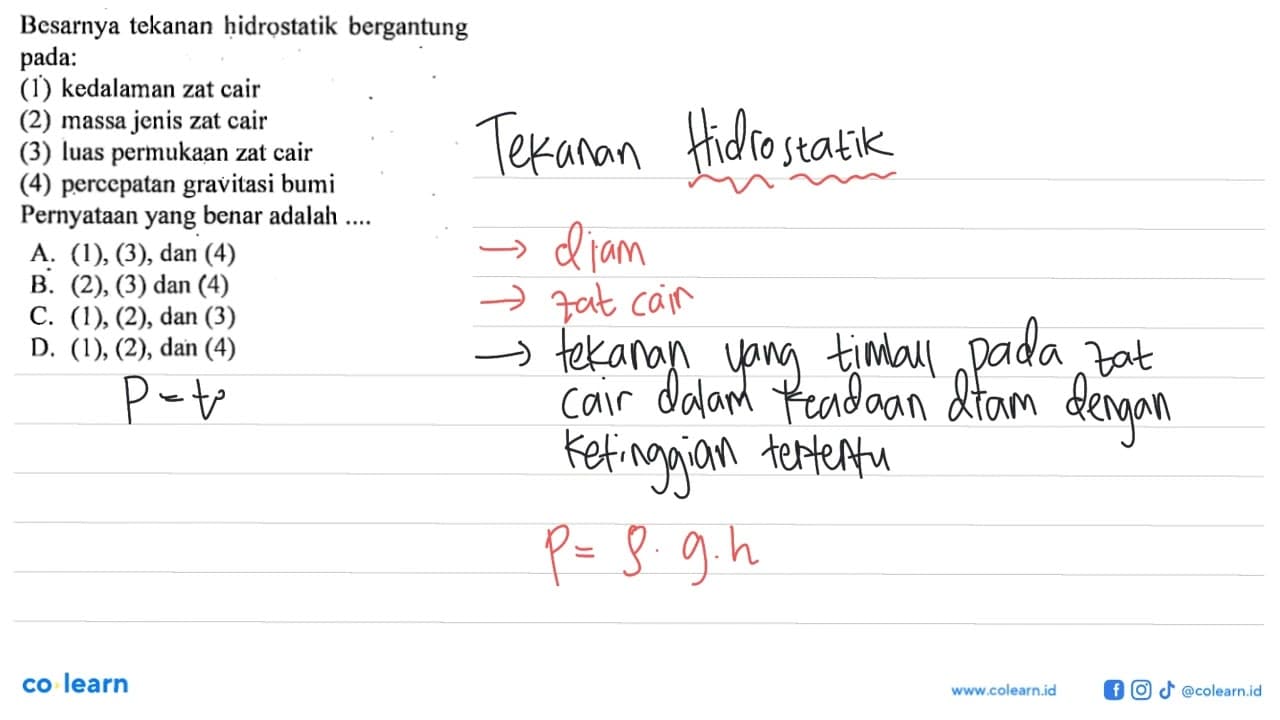 Besarnya tekanan hidrostatik bergantung
pada:
(1) kedalaman zat cair
(2) massa jenis zat cair
(3) luas permukaan zat cair
(4) percepatan gravitasi bumi
Pernyataan yang benar adalah ....
A. (1), (3), dan (4)
B. (2), (3) dan (4)
C. (1), (2), dan (3)
D. (1), (2), dan (4)
P =
Tekanan Hidrostatik
→ diam
→ zat cair
→ tekanan yang timbul pada zat
cair dalam keadaan diam dengan
ketinggian tertentu
P = ρ . g . h
co learn
www.colearn.id
@colearn.id